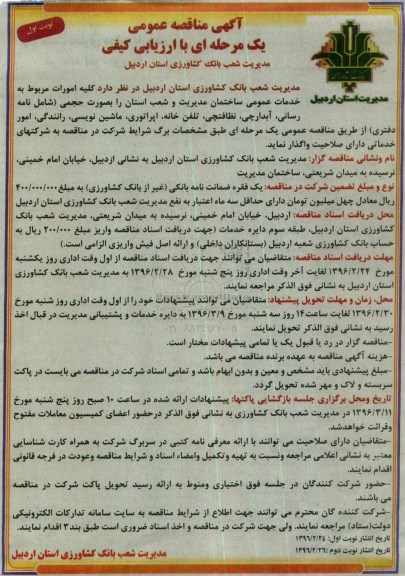 نوبت اول
آگهی مناقصه عمومی
یک مرحله ای با ارزیابی کیفی
مدیریت شعب بانک کشاورزی استان اردبیل
مدیریت استان اردبیل
مدیریت شعب بانک کشاورزی استان اردبیل در نظر دارد کلیه امورات مربوط به
خدمات عمومی ساختمان مدیریت و شعب استان را بصورت حجمی (شامل نامه
رسانی، آبدارچی، نظافتچی، تلفن خانه، اپراتوری، ماشین نویسی، رانندگی، امور
دفتری) از طریق مناقصه عمومی یک مرحله ای طبق مشخصات برگ شرایط شرکت در مناقصه به شرکتهای
خدماتی دارای صلاحیت واگذار نماید.
نام ونشانی مناقصه گزار: مدیریت شعب بانک کشاورزی استان اردبیل به نشانی اردبیل، خیابان امام خمینی،
نرسیده به میدان شریعتی، ساختمان مدیریت
نوع و مبلغ تضمین شرکت در مناقصه: یک فقره ضمانت نامه بانکی (غیر از بانک کشاورزی) به مبلغ۴۰۰/۰۰۰/۰۰۰
ریال معادل چهل میلیون تومان دارای حداقل سه ماه اعتبار به نفع مدیریت شعب بانک کشاورزی استان اردبیل
محل دریافت اسناد مناقصه: اردبیل، خیابان امام خمینی، نرسیده به میدان شریعتی، مدیریت شعب بانک
کشاورزی استان اردبیل، طبقه سوم دایره خدمات (جهت دریافت اسناد مناقصه واریز مبلغ ۲۰۰/۰۰۰ ریال به
حساب بانک کشاورزی شعبه اردبیل (بستانکاران داخلی) و ارائه اصل فیش واریزی الزامی است.)
مهلت دریافت اسناد مناقصه: متقاضیان می توانند جهت دریافت اسناد مناقصه از اول وقت اداری روز یکشنبه
مورخ ۱۳۹۶/۲/۲۴ لغایت آخر وقت اداری روز پنج شنبه مورخ ۱۳۹۶/۲/۲۸ به مدیریت شعب بانک کشاورزی
استان اردبیل به نشانی فوق الذکر مراجعه نمایند.
محل، زمان و مهلت تحویل پیشنهاد: متقاضیان می توانند پیشنهادات خود را از اول وقت اداری روز شنبه مورخ
۱۳۹۶/۲/۳۰ لغایت ساعت۱۴ روز سه شنبه مورخ ۱۳۹۶/۳/۹ به دایره خدمات و پشتیبانی مدیریت در قبال اخذ
رسید به نشانی فوق الذکر تحویل نمایند.
-مناقصه گزار در رد یا قبول یک یا تمامی پیشنهادات مختار است.
-هزینه آگهی مناقصه به عهده برنده مناقصه می باشد.
-مبلغ پیشنهادی باید مشخص و معین و بدون ابهام باشد و تمامی اسناد شرکت در مناقصه می بایست در پاکت
سربسته و لاک و مهر شده تحویل گردد.
تاریخ ومحل برگزاری جلسه بازگشایی پاکتها: پیشنهادات ارائه شده در ساعت ۱۰ صبح روز پنج شنبه مورخ
۱۳۹۶/۳/۱۱ در مدیریت شعب بانک کشاورزی به نشانی فوق الذکر درحضور اعضای کمیسیون معاملات مفتوح
وقرائت خواهدشد.
-متقاضیان دارای صلاحیت می توانند با ارائه معرفی نامه کتبی در سربرگ شرکت به همراه کارت شناسایی
معتبر به نشانی اعلامی مراجعه ونسبت به تهیه وتکمیل وامضاء اسناد و شرایط مناقصه وعودت در فرجه قانونی
اقدام نمایند.
-حضور شرکت کنندگان در جلسه فوق اختیاری ومنوط به ارائه رسید تحویل پاکت شرکت در مناقصه
می باشند.
-شرکت کننده گان محترم می توانند جهت اطلاع از شرایط مناقصه به سایت سامانه تدارکات الکترونیکی
دولت(ستاد) مراجعه نمایند. ولی جهت شرکت در مناقصه و اخذ اسناد ضروری است طبق بند۳ اقدام نمایند.
تاریخ انتشار نوبت اول: ۱۳۹۶/۲/۲۴
تاریخ انتشار نوبت دوم :۱۳۹۶/۲/۲۶
مدیریت شعب بانک کشاورزی استان اردبیل